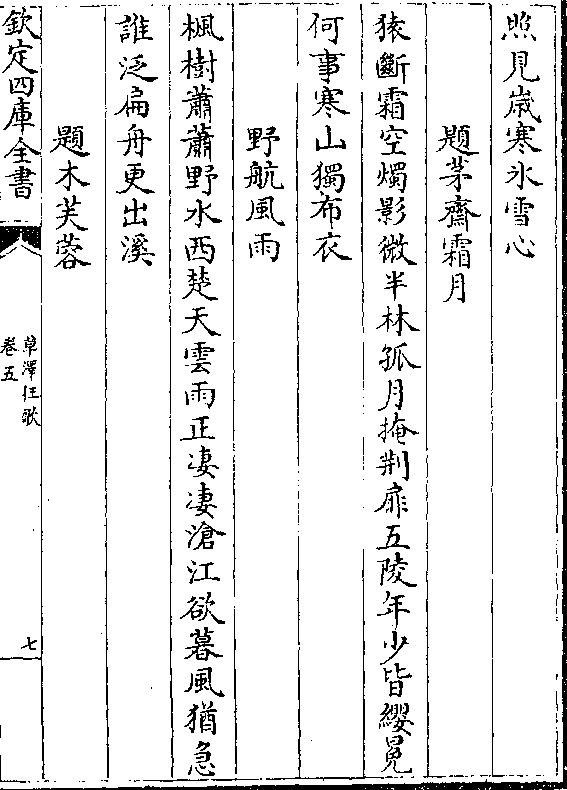 照見嵗寒氷雪心
題茅齋霜月
猿斷霜空燭影微半林孤月掩荆扉五陵年少皆纓冕
何事寒山獨布衣
野航風雨
楓樹蕭蕭野水西楚天雲雨正凄凄滄江欲暮風猶急
誰泛扁舟更出溪
題木芙蓉
欽定四庫全書
草澤狂歌
卷五
七